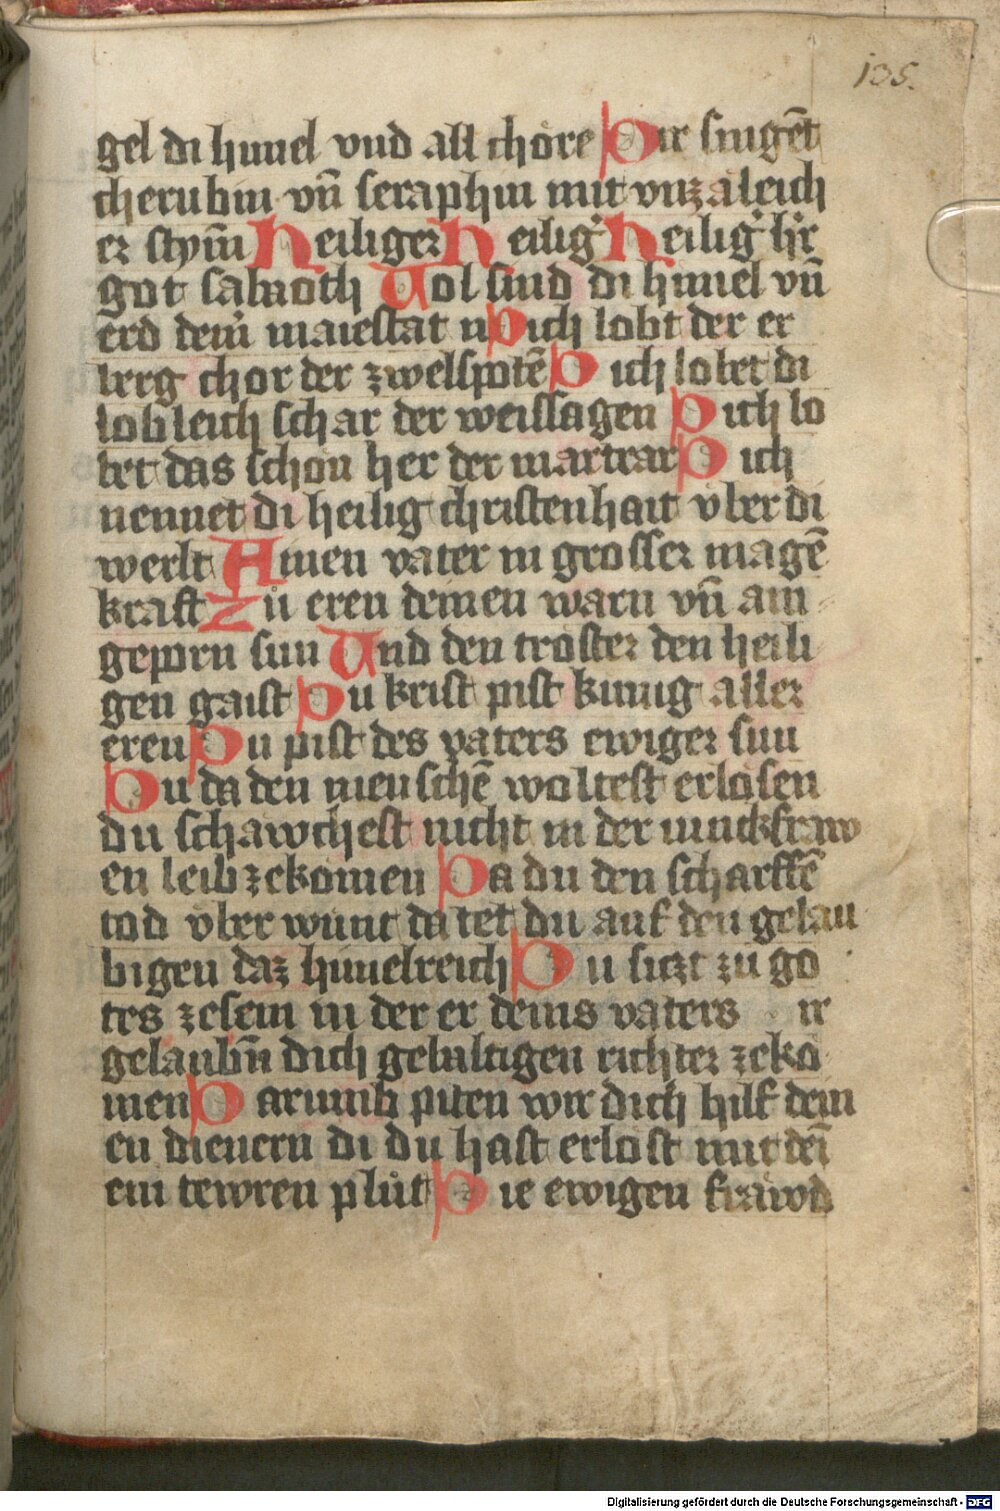 135.
gel di himel vnd all chöre Dir singēt
cherubin vn̄ seraphin mit vnzäleich
er stym̄ Heiliger Heilig᾽ Heilig᾽ h᾽r
got sabaoth Uol sind di himel vn̄
erd deiner maiestat n Dich lobt der er
berg chor der zwelfpotē Dich lobet di
lobleich schar der weissagen Dich lo
bet das schön her der marträr Dich
nennet di heilig christenhait vber di
werlt Amen vater in grosser magē
kraft Zü eren deinen warn vn̄ ain
geporn sun Und den tröster den heili
gen gaist Du krist pist kunig aller
eren Du pist des vaters ewiger sun
Du da den menschē woltest erlösen
du schäwchest nicht in der iunckfraw
en leib zekomen Da du den scharffē
tod vber wunt da tet du auf den gelau
bigen daz himelreich Du siczt zü go
tes zesem in der er deins vaters ir
gelaubn̄ dich gebaltigen richter zekö
men Darumb piten wir dich hilf dein
en dienern di du hast erlöst mit dēi
em tewren plüt Die ewigen fräwd
Digitalisierung gefördert durch die Deutsche Forschungsgemeinschaft - DFG